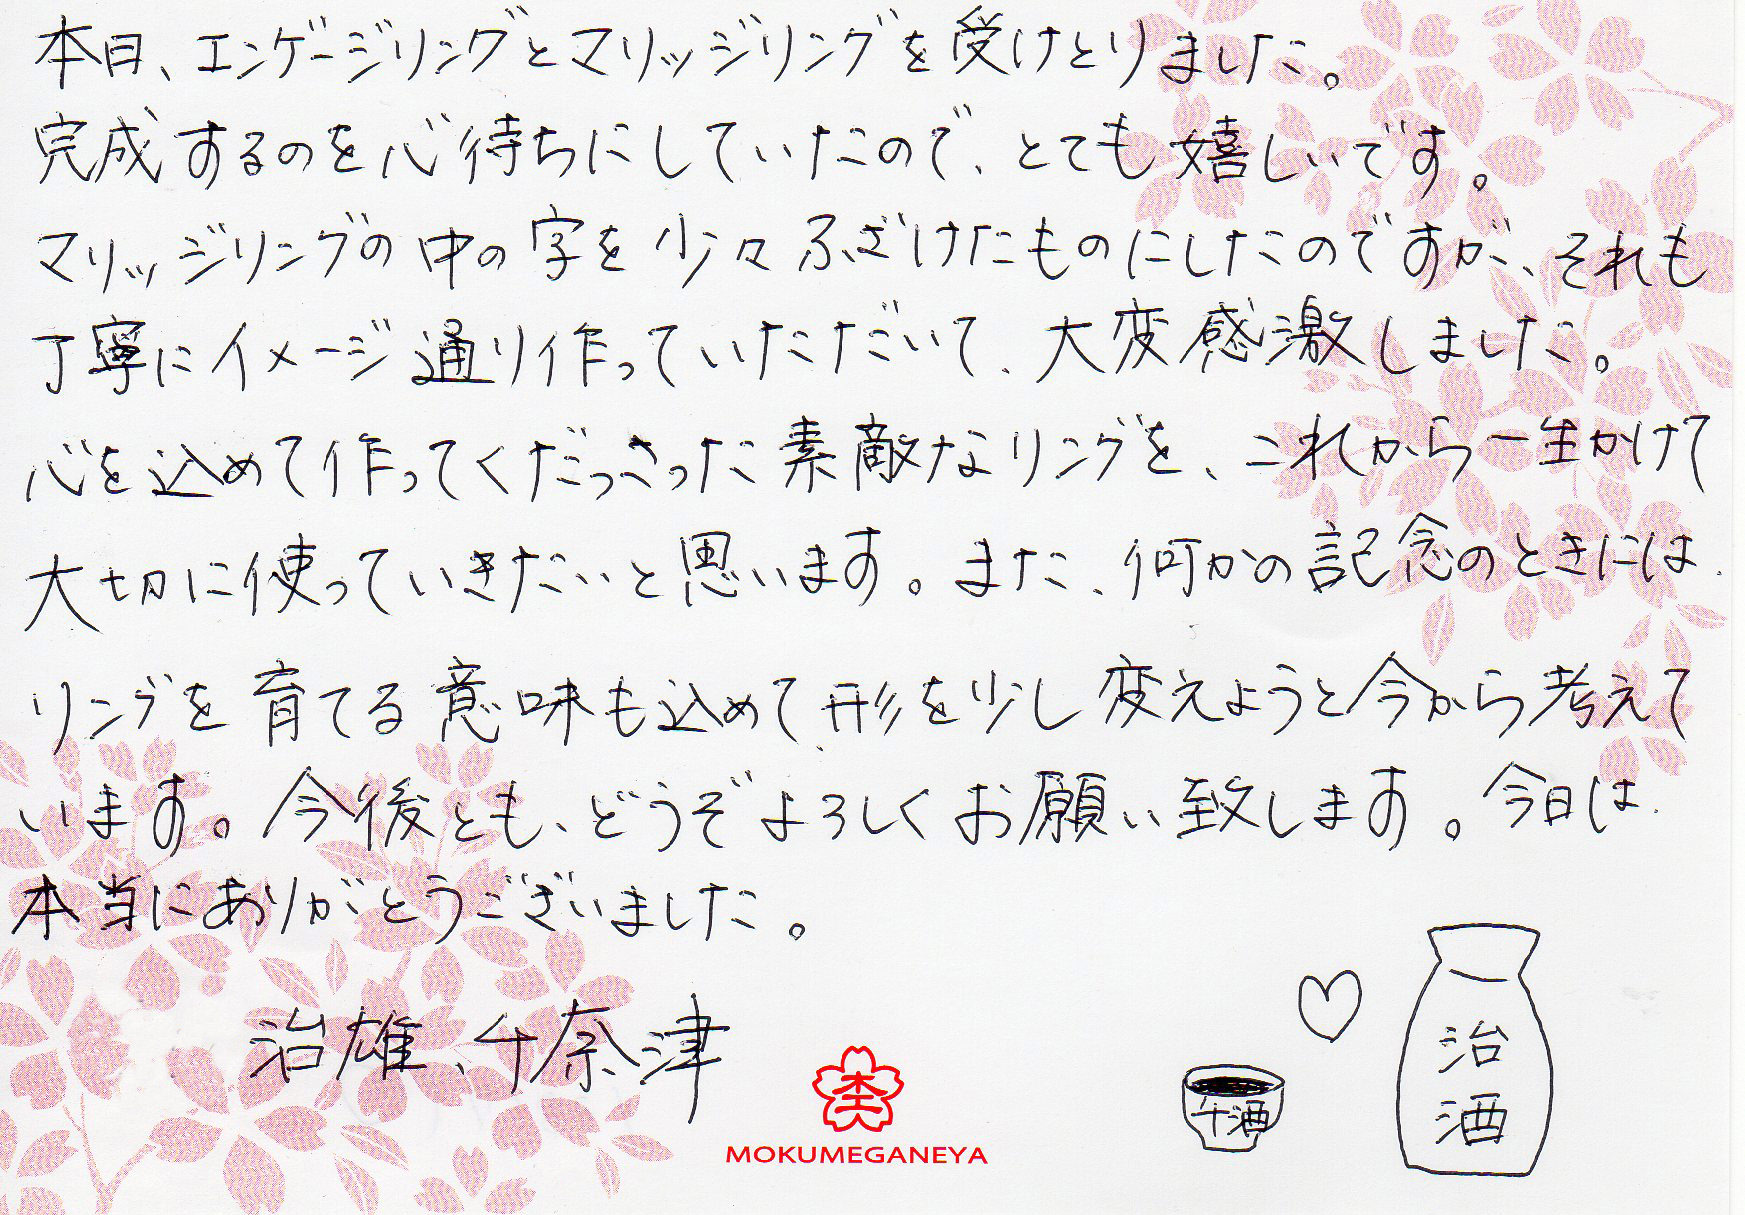 本日、エンゲージリングとマリッジリングを受けとりました。
完成するのを心待ちにしていたので、とても嬉しいです。
マリッジリングの中の字を少々ふざけたものにしたのですが、それも
丁寧にイメージ通り作っていただいて、大変感激しました。
心を込めて作ってくだっさった素敵なリングを、これから一生かけて
大切に使っていきたいと思います。また、何かの記念のときには、
リングを育てる意味も込めて、形を少し変えようと今から考えて
います。今後とも、どうぞよろしくお願い致します。今日は、
本当にありがとうございました。
治雄、千奈津
MOKUMEGANEYA
千酒
治
酒